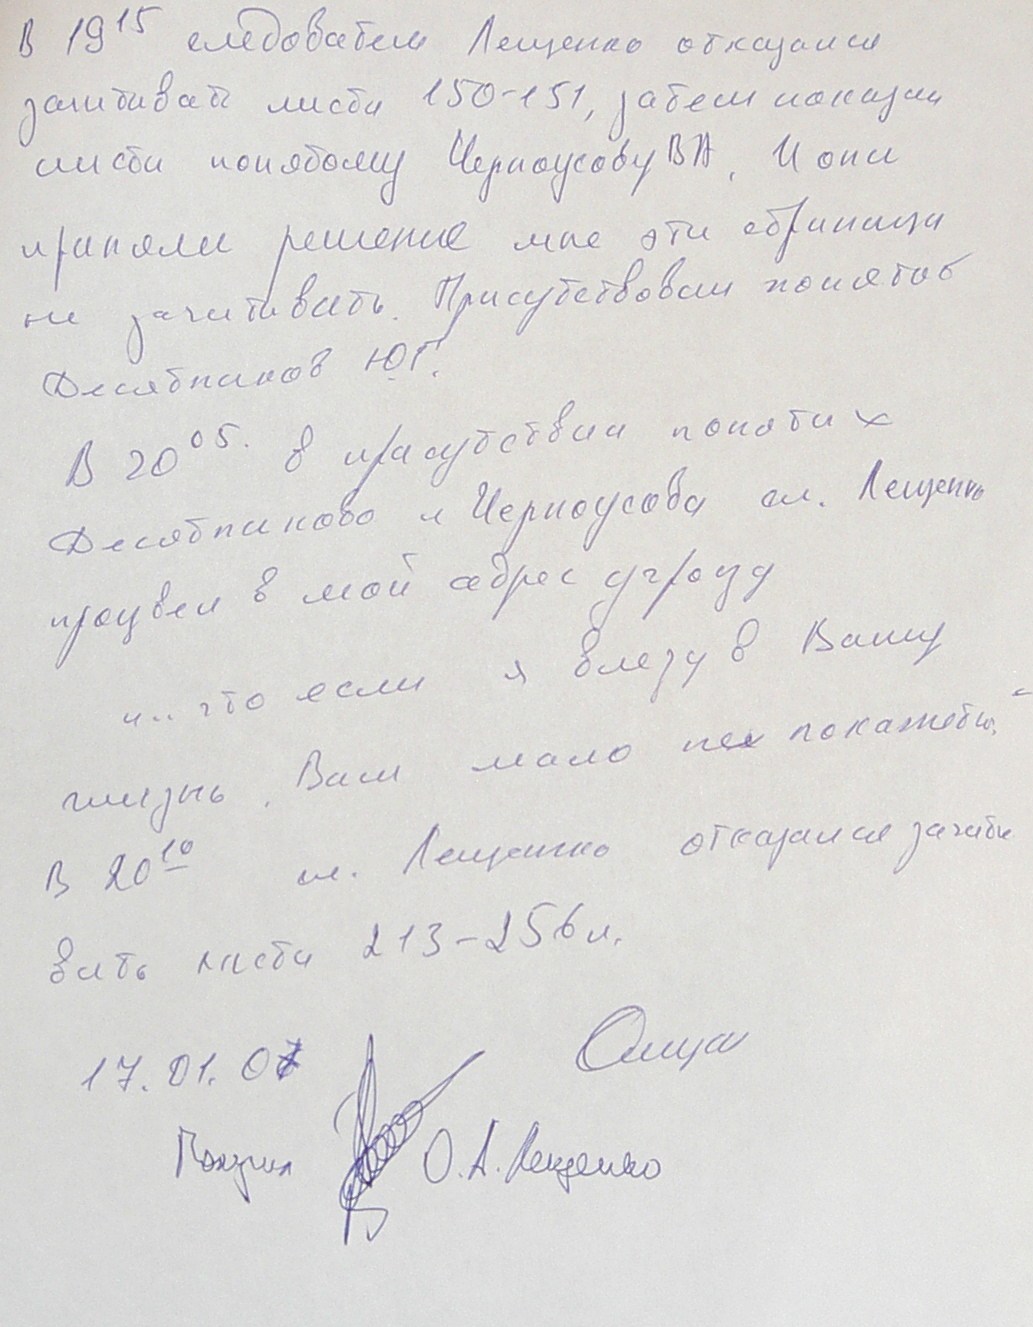 В 19¹⁵ следователь Лещенко отказался
зачитывать листы 150-151, затем показал
листы понятому Черноусову ВА. И они
приняли решение мне эти страницы
не зачитывать. Присутствовал понятой
Десятников ЮГ.
В 20⁰⁵. в присутствии понятых
Десятникова и Черноусова сл. Лещенко
произвел в мой адрес угрозу
"... что если я влезу в Вашу
жизнь, Вам мало не покажется."
В 20¹⁰ сл. Лещенко отказался зачиты
вать листы 213-256 л.
17.01.07
Получил О.А. Лещенко